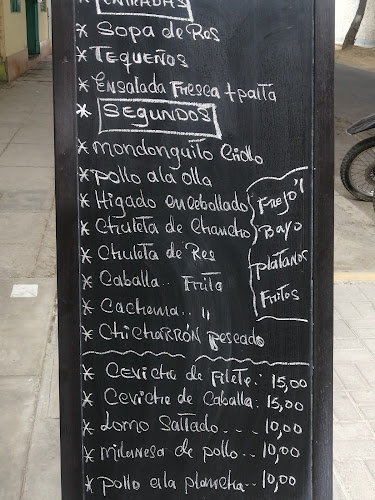 * ENTRADAS
* Sopa de Res
* Tequeños
* Ensalada Fresca + palta
* SEGUNDOS
* Mondonguito Criollo
* pollo ala olla
* Higado encebollado
* Chuleta de Chancho
* Chuleta de Res
* Caballa.. Frita
* Cachema.. "
* Chicharrón pescado
Frejol
Bayo
platanos
Fritos
* Ceviche de Filete: 15,00
* Ceviche de Caballa: 15,00
* Lomo Saltado... 10,00
* Milanesa de pollo.. 10,00
* pollo ala plancha.. 10,00